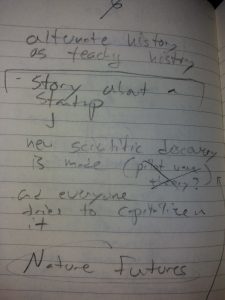 alternate history
as teachy history
- Story about a
startup
new scientific discovery
is made (pilot wave
theory?)
and everyone
tries to capitalize on
it
Nature Futures